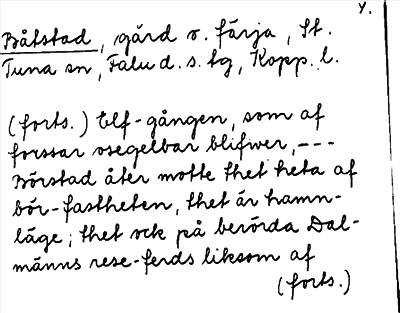 4.
Båtstad, gård o. färja, St.
Tuna sn, Falu d. s. tg, Kopp. l.
(forts.) Elf-gången, som af
forssar osegelbar blifwer, ---
Börstad åter motte thet heta af
bör-fastheten, thet är hamn-
läge; thet ock på berörda Dal-
männs rese-ferds liksom af
(forts.)